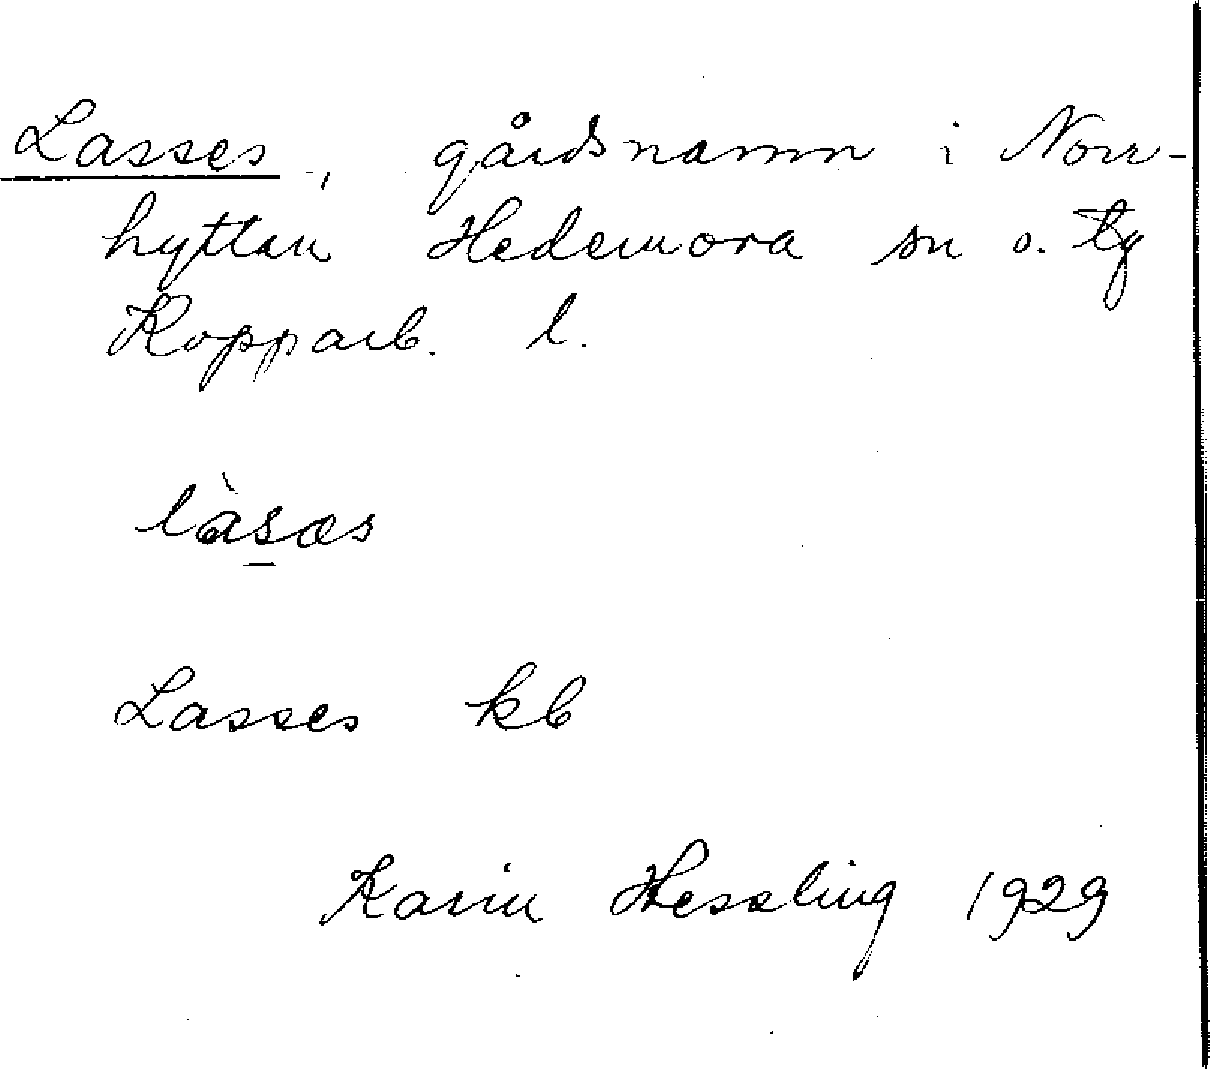 Lasses, gårdsnamn i Norr-
hyttan Hedemora sn o. tg
Kopparb. l.
làs̲æs
Lasses kb
Karin Hessling 1929